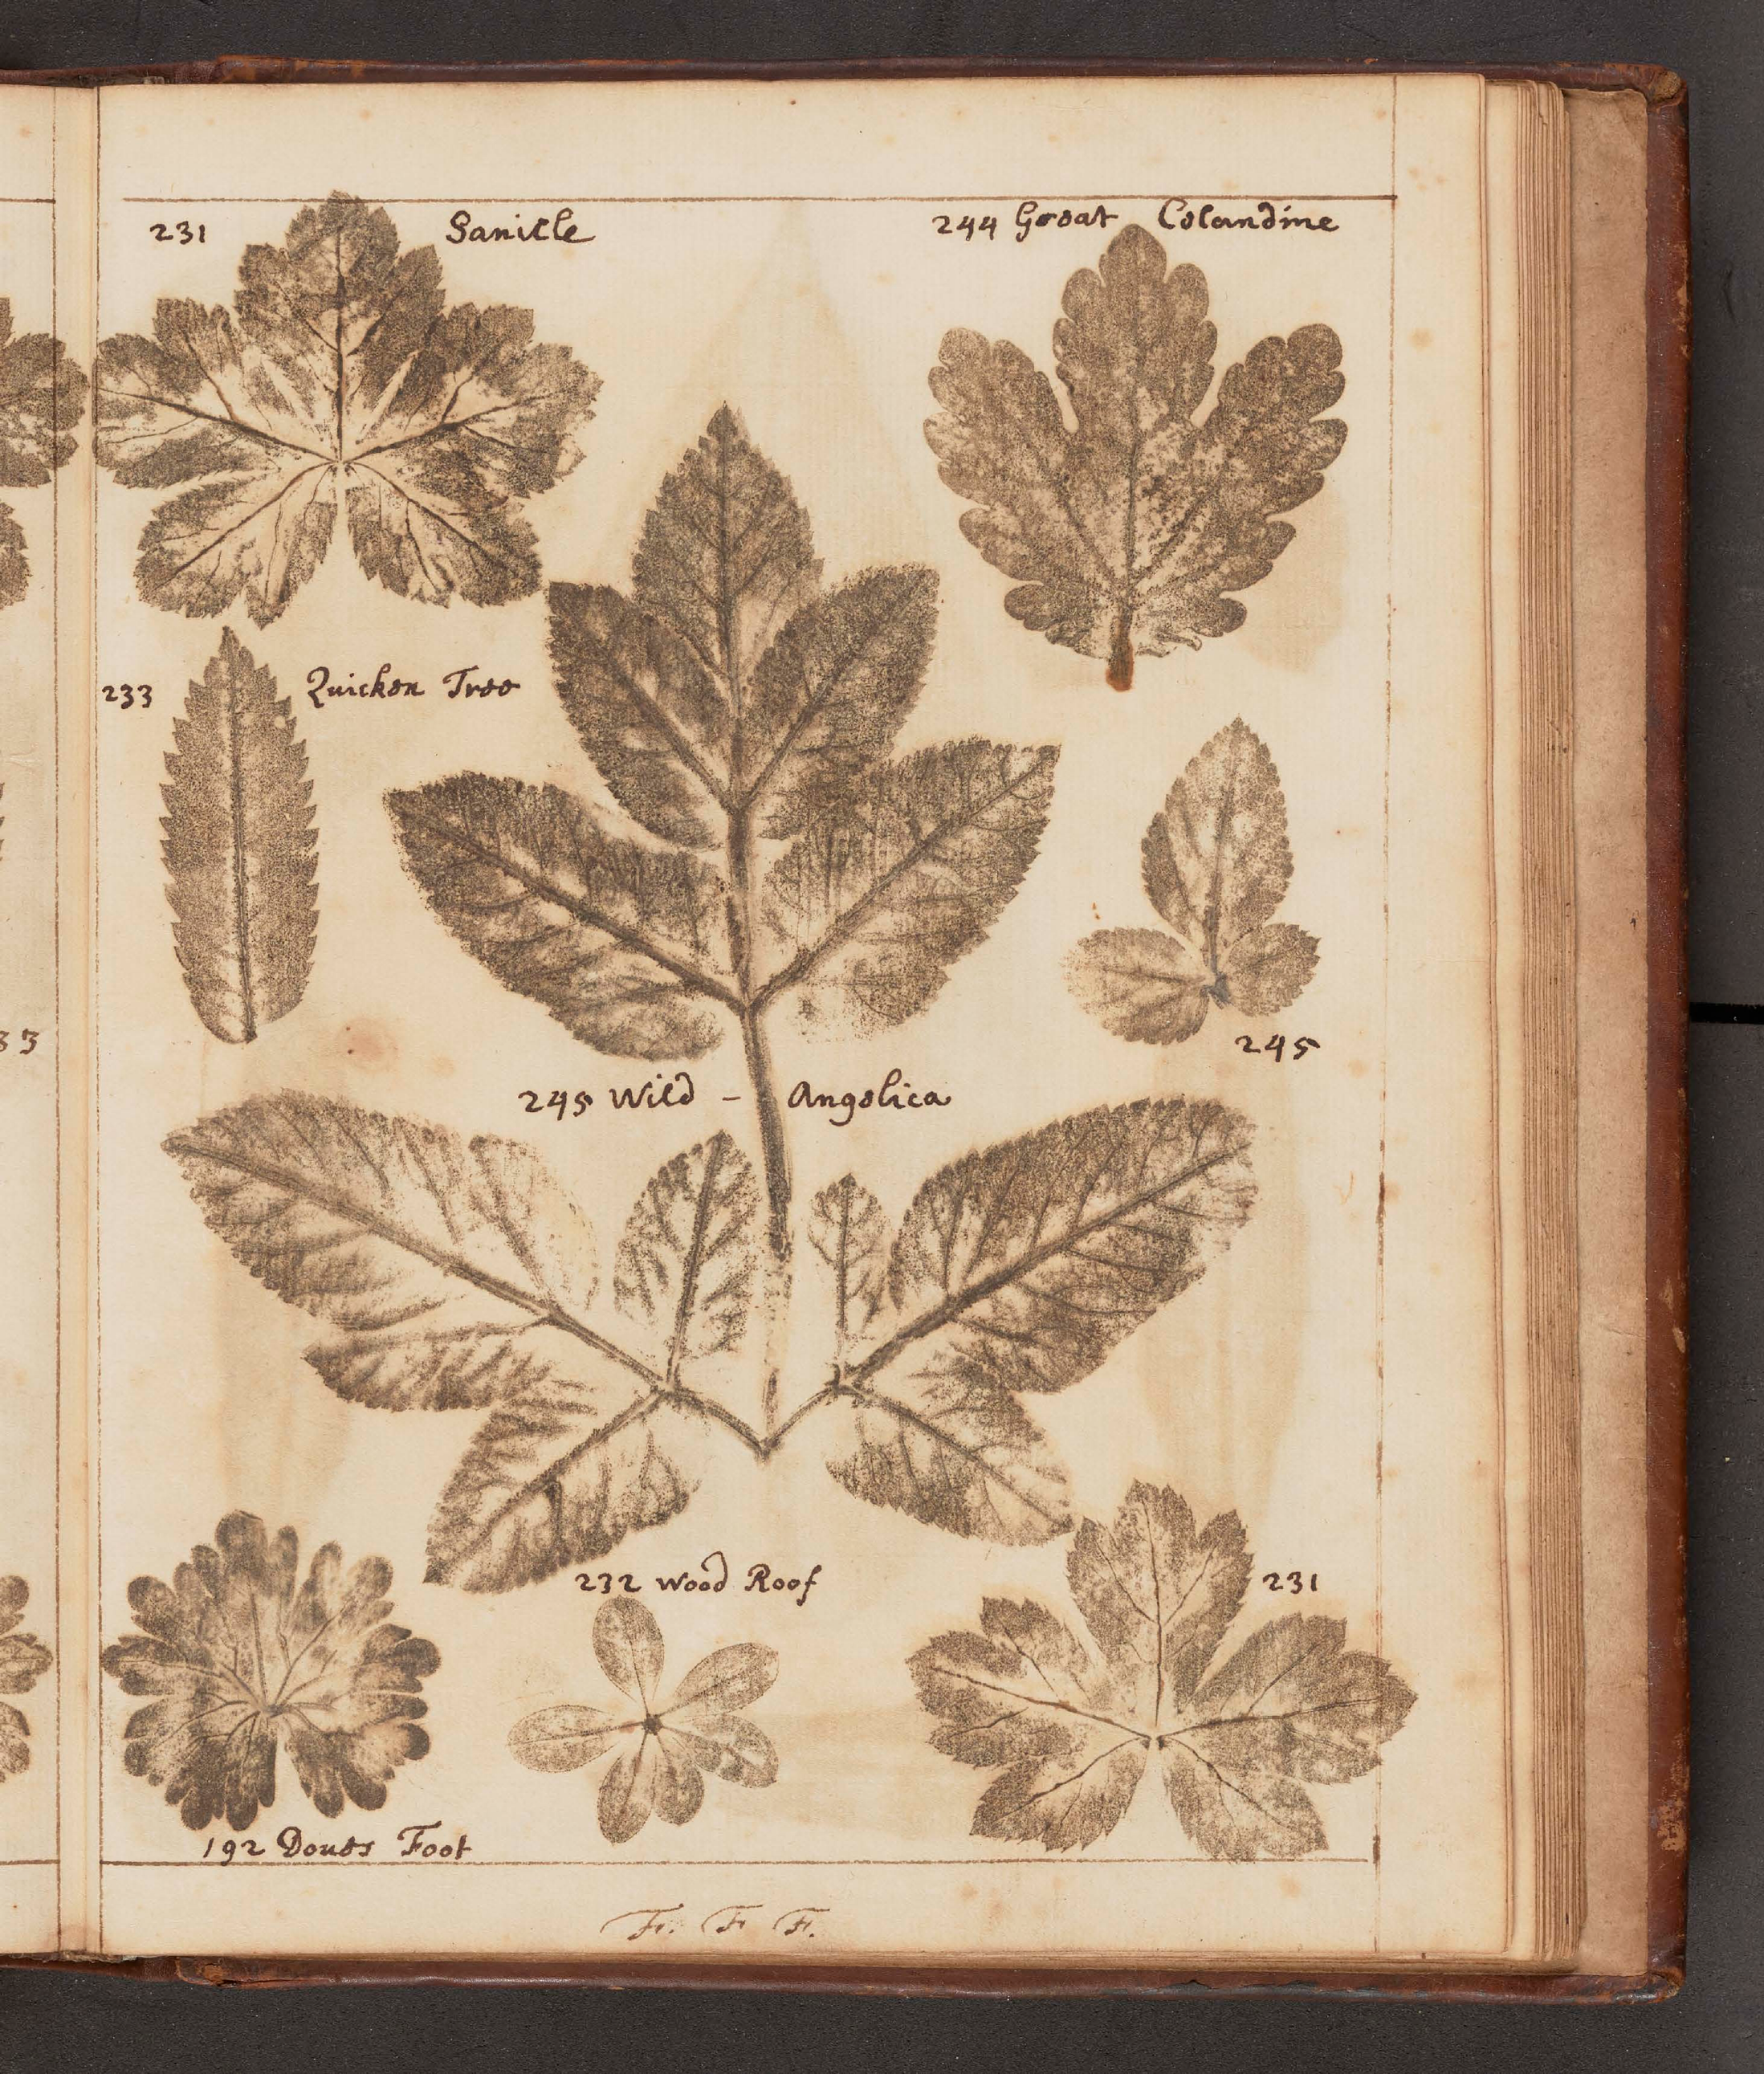 231 Sanicle
244 Great Celandine
233 Quicken Tree
33
245
245 Wild - Angelica
232 Wood Roof
231
192 Doves Foot
F. F F.